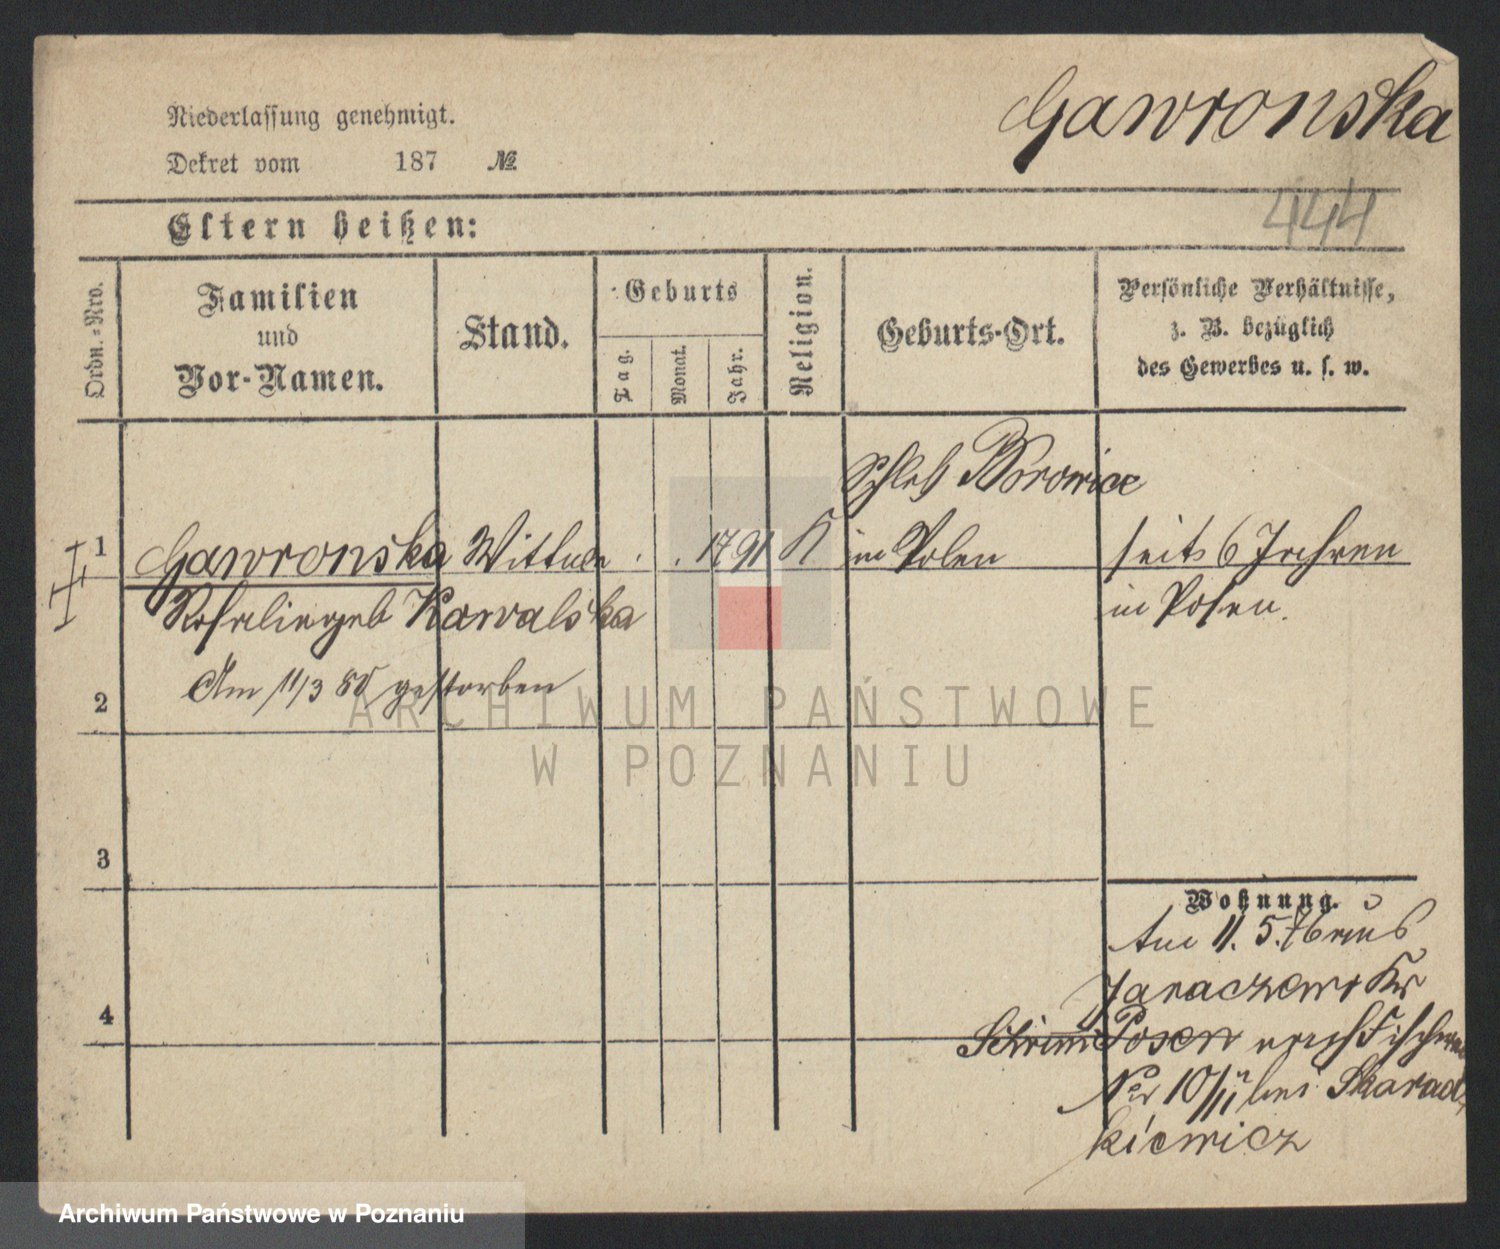 Niederlassung genehmigt.
Dekret vom 187 №
Gawronska
444
Eltern heißen:
Ordn.-Nro.
Familien
und
Vor-Namen.
Stand.
Geburts
Tag.
Monat.
Jahr.
Religion.
Geburts-Ort.
Persönliche Verhältnisse,
z. B. bezüglich
des Gewerbes u. s. w.
Borowice
1 Gawronska Wittwe . . 1791 K in Polen seit 6 Jahren
Rosalie geb Kowalska in Posen.
Am 11/3 80 gestorben
2
3
4
Wohnung.
Am 11. 5. 76 aus
Jaraczewo Kr
Schrimm Posen nach
No 10/11 bei Skarad
kiewicz
ARCHIWUM PAŃSTWOWE
W POZNANIU
Archiwum Państwowe w Poznaniu